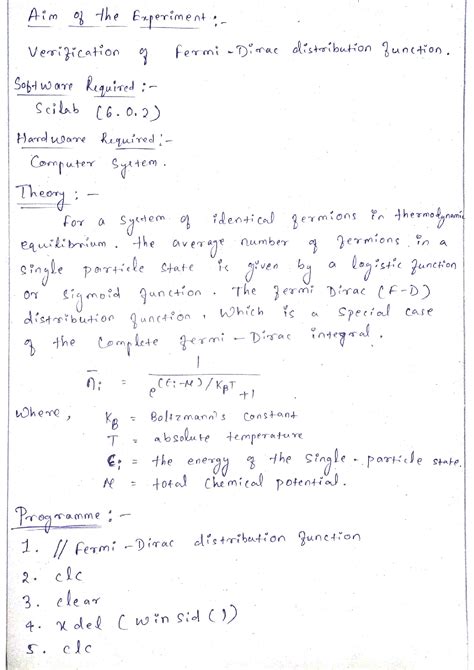 Aim of the Experiment :-
Verification of Fermi - Dirac distribution function.
Software Required :-
Scilab (6.0.2)
Hardware Required :-
Computer System.
Theory : -
For a system of identical fermions in thermodynamic
equilibrium. the average number of fermions in a
single particle state is given by a logistic function
or sigmoid function. The fermi Dirac (F-D)
distribution function, which is a special case
of the complete fermi - Dirac integral.
n̄i = 1 / e^(Ei-μ)/KBT +1
where, KB = Boltzmann's constant
T = absolute temperature
Ei = the energy of the single - particle state.
μ = total chemical potential.
Programme : -
1. // Fermi - Dirac distribution function
2. clc
3. clear
4. xdel (winsid())
5. clc